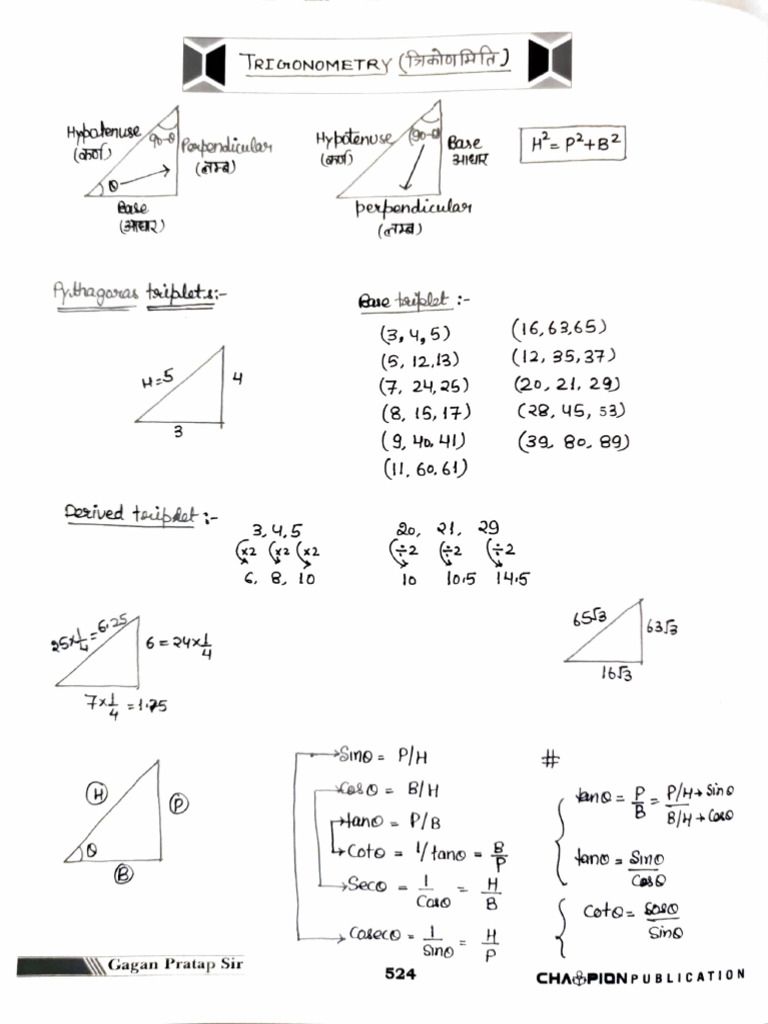 TRIGONOMETRY (त्रिकोणमिति)
Hypotenuse
(कर्ण)
90-θ
Perpendicular
(लम्ब)
θ
Base
(आधार)
Hypotenuse
(कर्ण)
(90-θ)
Base
आधार
perpendicular
(लम्ब)
H²= P²+B²
Pythagoras triplets:-
H=5
4
3
Base triplet :-
(3, 4, 5)
(5, 12, 13)
(7, 24, 25)
(8, 15, 17)
(9, 40, 41)
(11, 60, 61)
(16, 63, 65)
(12, 35, 37)
(20, 21, 29)
(28, 45, 53)
(39, 80, 89)
Derived triplet :-
3, 4, 5
×2 ×2 ×2
6, 8, 10
20, 21, 29
÷2 ÷2 ÷2
10 10.5 14.5
25×1/4 = 6.25
6 = 24×1/4
7×1/4 = 1.75
65√3
63√3
16√3
H
P
θ
B
Sinθ = P/H
Cosθ = B/H
tanθ = P/B
Cotθ = 1/tanθ = B/P
Secθ = 1/Cosθ = H/B
Cosecθ = 1/Sinθ = H/P
#
tanθ = P/B = P/H→Sinθ / B/H→Cosθ
tanθ = Sinθ/Cosθ
Cotθ = Cosθ/Sinθ
Gagan Pratap Sir
524
CHAMPION PUBLICATION